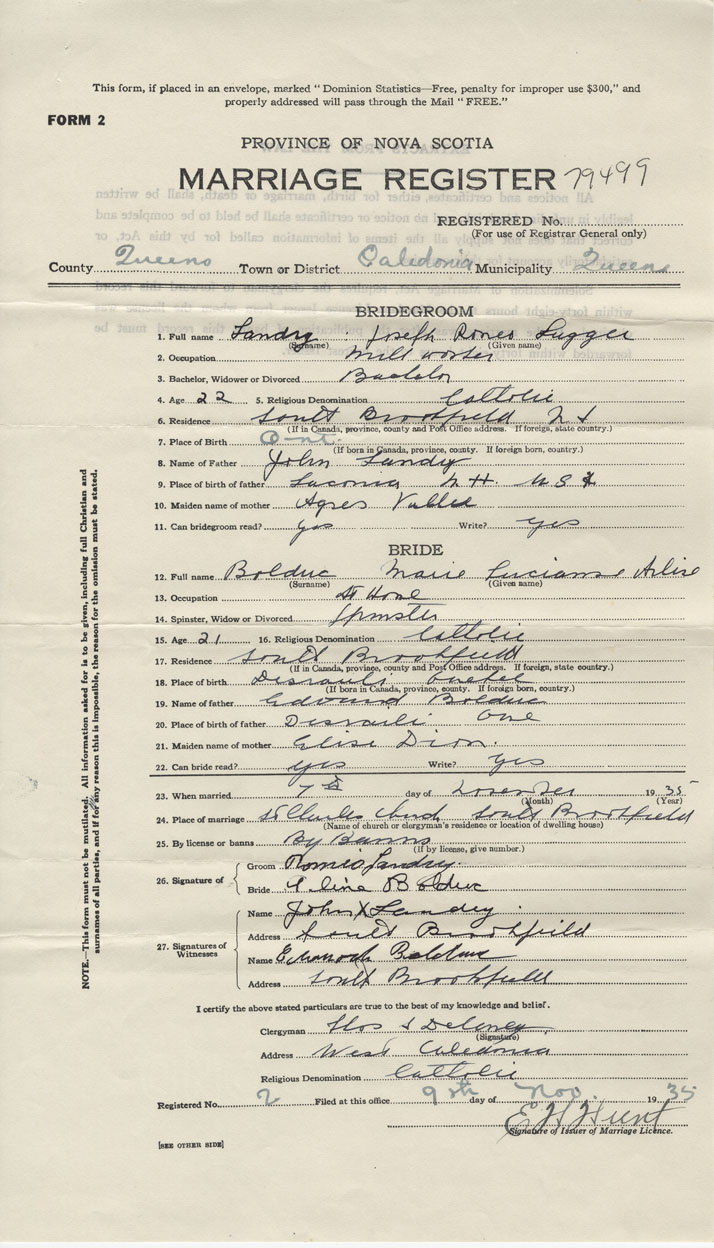 This form, if placed in an envelope, marked "Dominion Statistics—Free, penalty for improper use $300," and
properly addressed will pass through the Mail "FREE."
FORM 2
PROVINCE OF NOVA SCOTIA
MARRIAGE REGISTER 79499
REGISTERED No.
(For use of Registrar General only)
County Queens Town or District Caledonia Municipality Queens
BRIDEGROOM
1. Full name Landry Joseph Romeo
(Surname) (Given name)
2. Occupation Mill worker
3. Bachelor, Widower or Divorced Bachelor
4. Age 22 5. Religious Denomination Catholic
6. Residence South Brookfield N S
(If in Canada, province, county and Post Office address. If foreign, state country.)
7. Place of Birth Ont.
(If born in Canada, province, county. If foreign born, country.)
8. Name of Father John Landry
9. Place of birth of father Laconia N. H. U S A
10. Maiden name of mother Agnes Vallee
11. Can bridegroom read? yes Write? yes
BRIDE
12. Full name Bolduc Marie Lucianne
(Surname) (Given name)
13. Occupation At Home
14. Spinster, Widow or Divorced Spinster
15. Age 21 16. Religious Denomination Catholic
17. Residence South Brookfield
(If in Canada, province, county and Post Office address. If foreign, state country.)
18. Place of birth Disraeli Quebec
(If born in Canada, province, county. If foreign born, country.)
19. Name of father Bolduc
20. Place of birth of father Disraeli Que
21. Maiden name of mother Elise Dion.
22. Can bride read? yes Write? yes
23. When married 7th day of November 1935
(Month) (Year)
24. Place of marriage St Charles church South Brookfield
(Name of church or clergyman's residence or location of dwelling house)
25. By license or banns By Banns
(If by license, give number.)
26. Signature of
Groom Romeo Landry.
Bride Aline Bolduc
27. Signatures of Witnesses
Name John X Landry.
Address South Brookfield
Name Bolduc
Address South Brookfield
I certify the above stated particulars are true to the best of my knowledge and belief.
Clergyman Thos J Delaney
(Signature)
Address West Caledonia
Religious Denomination Catholic
Registered No. 2 Filed at this office 9th day of Nov. 1935
E H Hunt
Signature of Issuer of Marriage Licence.
[SEE OTHER SIDE]
NOTE.—This form must not be mutilated. All information asked for is to be given, including full Christian and
surnames of all parties, and if for any reason this is impossible, the reason for the omission must be stated.